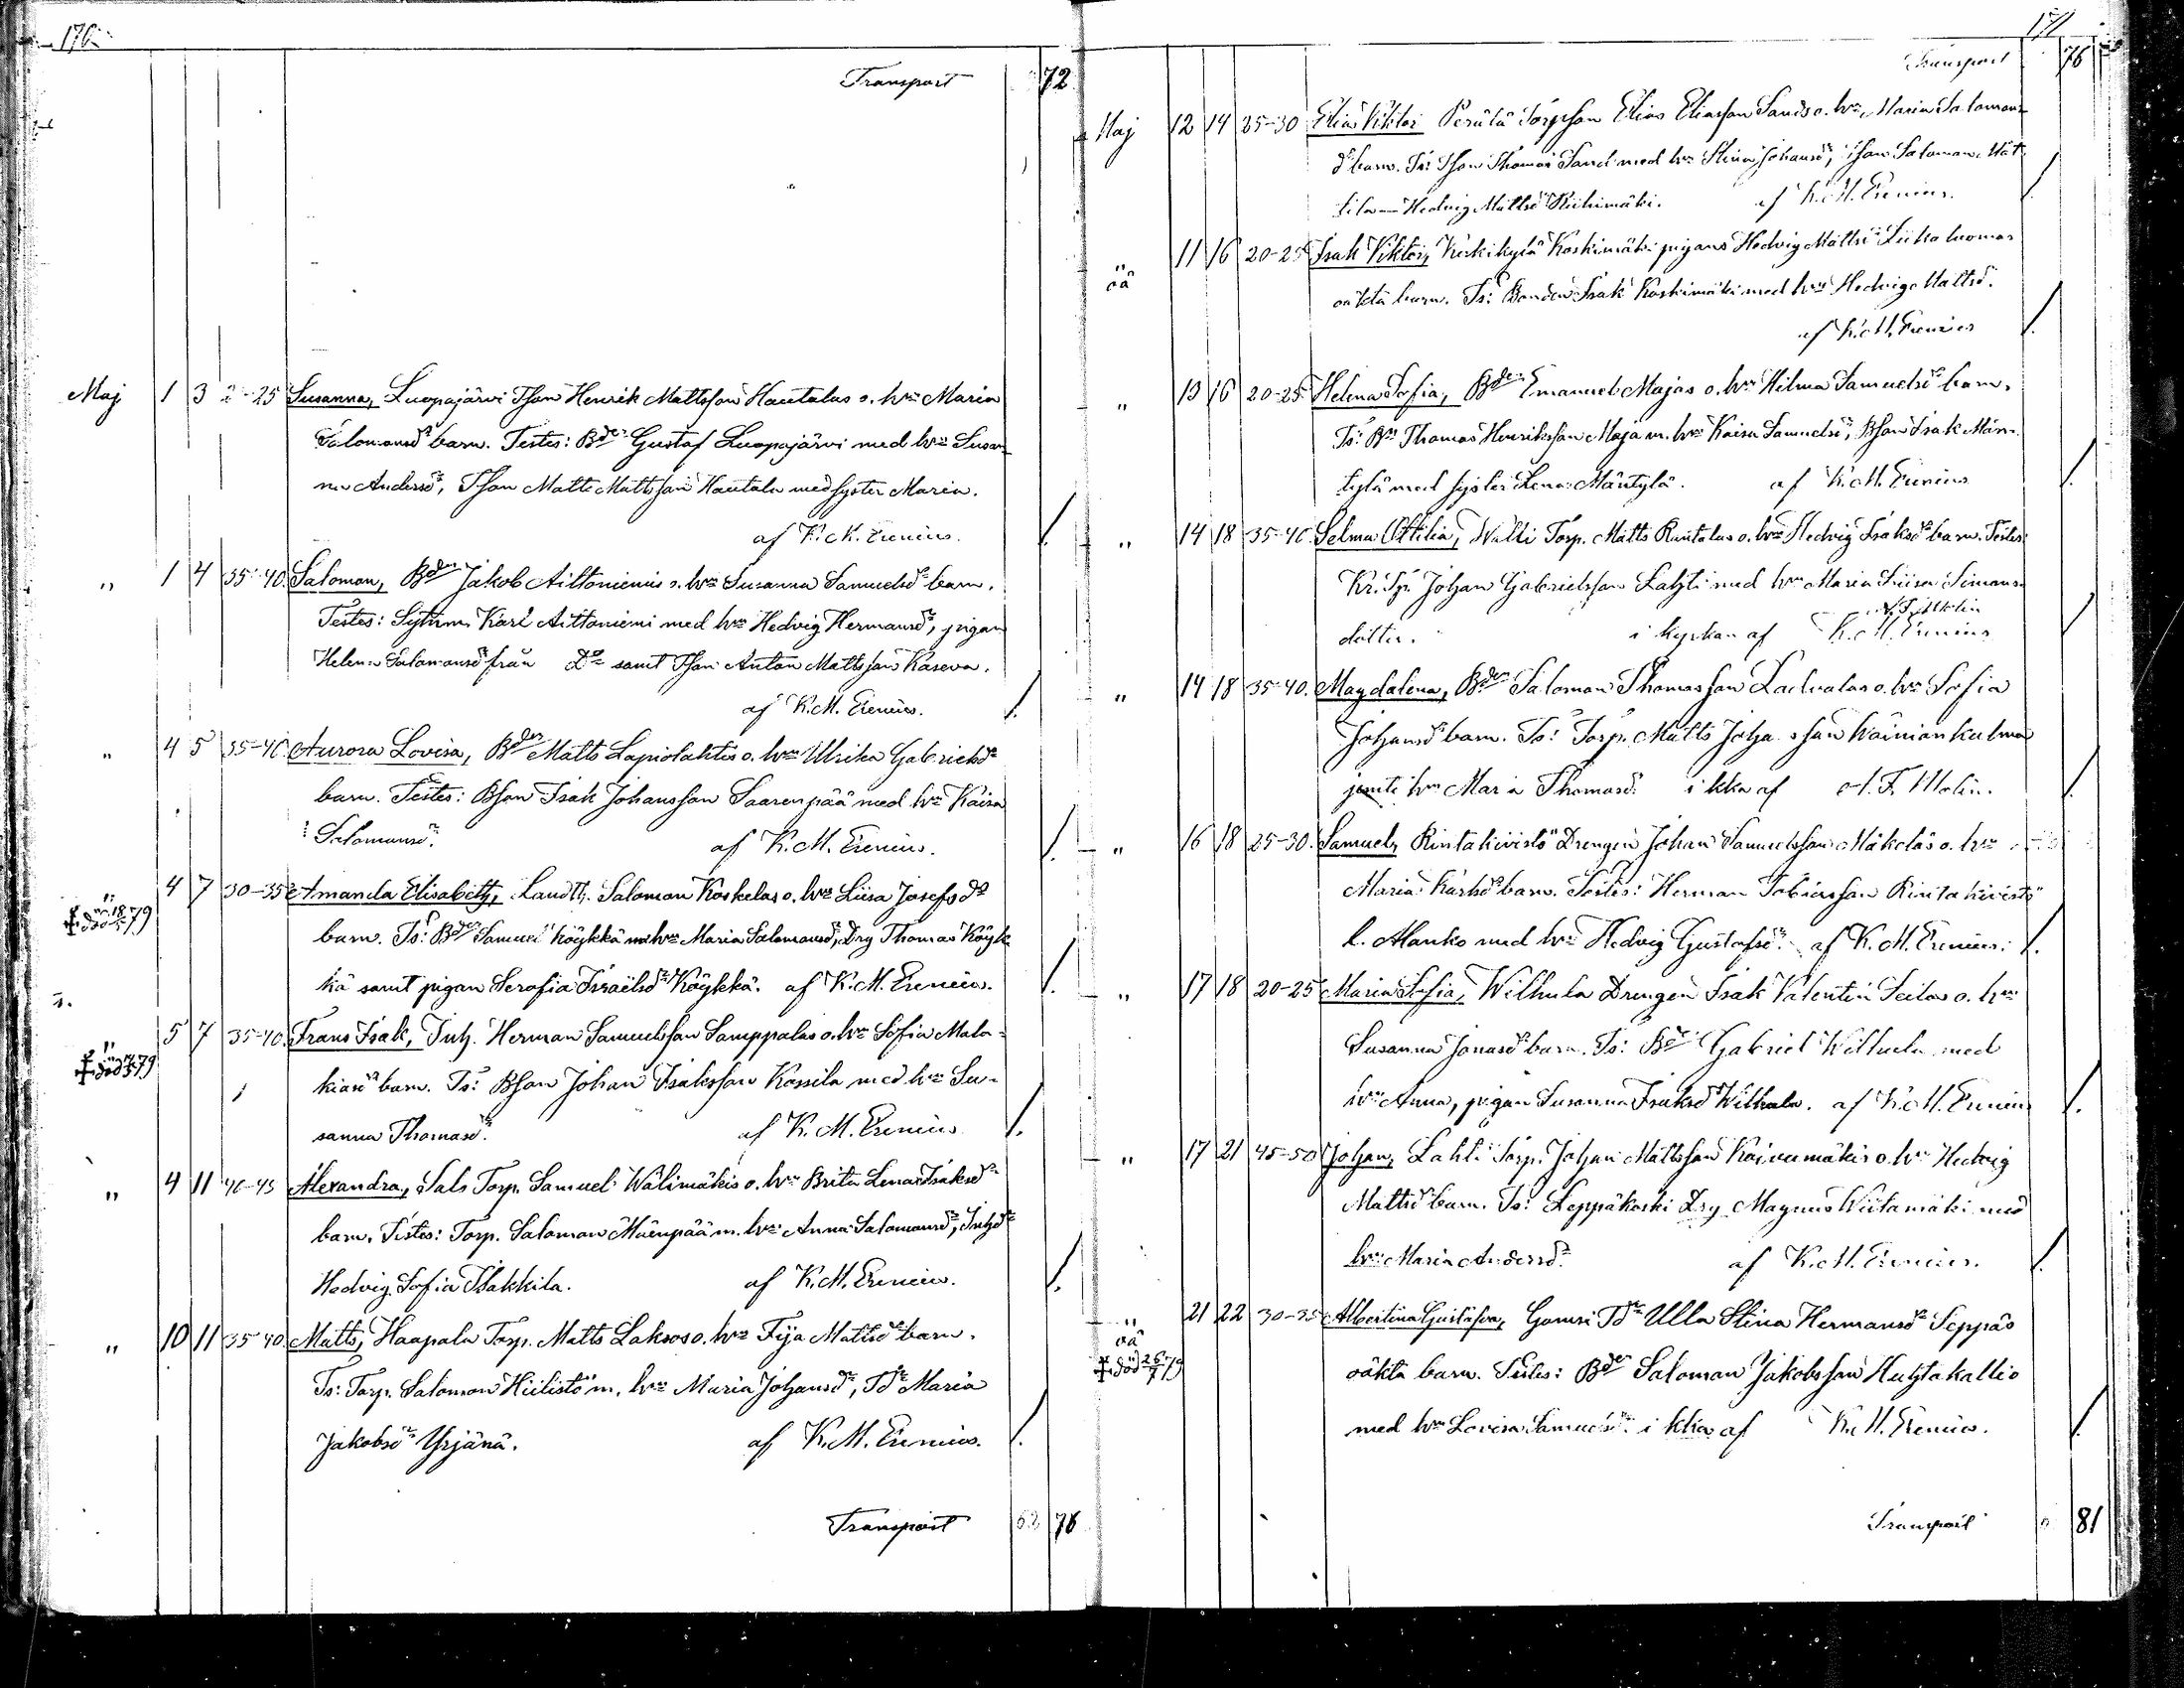 170
Transport 72
Maj 1 3 2 -25 Susanna, Luopajärvi Tson Henrik Mattsson Hautalas o. hru Maria
Salomonsdr barn. Testes: Bden Gustaf Luopajärvi med hru Susan-
na Andersdr, Tson Matts Mattsson Hautala med syster Maria.
af K. M. Crenius. /.
" 1 4 35-40 Salomon, Bden Jakob Aittoniemis o. hru Susanna Samuelsdr barn.
Testes: Sytnm. Karl Aittoniemi med hru Hedvig Hermansdr, pigan
Helena Salomonsdr från Do samt Tson Anton Mattsson Kaseva.
af K. M. Crenius. /.
" 4 5 35-40 Aurora Lovisa, Bden Matts Lapiolahtis o. hru Ulrika Gabrielsdr
barn. Testes: Bson Isak Johansson Saarenpää med hru Kaisa
Salomonsdr. af K. M. Crenius. /.
" 4 7 30-35 Amanda Elisabeth, Landtb. Salomon Koskelas o. hru Liisa Josefsdr
† död 79
barn. Ts: Bden Samuel Köykkä m hru Maria Salomonsdr, Drg Thomas Köyk-
kä samt pigan Serafia Israelsdr Köykkä. af K. M. Crenius. /.
" 5 7 35-40 Frans Isak, Inh. Herman Samuelsson Samppalas o. hru Sofia Mala-
† död 79
kiasdr barn. Ts: Bson Johan Isaksson Kassila med hru Su-
sanna Thomasdr. af K. M. Crenius /.
" 4 11 40-45 Alexandra, Sals Torp. Samuel Wälimäkis o. hru Brita Lena Isaksdr
barn. Testes: Torp. Salomon Mäenpää m. hru Anna Salomonsdr, Inhdr
Hedvig Sofia Isakkila. af K. M. Crenius. /.
" 10 11 35-40 Matts, Haapala Torp. Matts Laksos o. hru Fija Mattsdr barn.
Ts: Torp. Salomon Hiilistö m. hru Maria Johansdr, Tdr Maria
Jakobsdr Yrjänä. af K. M. Crenius. /.
Transport 76
171
Transport 76
Maj 12 14 25-30 Elias Viktor Perälä Torpson Elias Eliasson Sands o. hru Maria Salomons-
dr barn. Ts: Tson Thomas Sand med hru Stina Johansdr, Tson Salomon Mat-
tila — Hedvig Mattsdr Riihimäki. af K. M. Crenius. /.
" 11 16 20-25 Isak Viktor, Keskikylä Koskimäki pigans Hedvig Mattsdr Liikaluomas
oä
oäkta barn. Ts: Bonden Isak Koskimäki med hru Hedvig Mattsdr.
af K. M. Crenius /.
" 13 16 20-25 Helena Sofia, Bden Emanuel Majas o. hru Hilma Samuelsdr barn.
Ts: Bn Thomas Henriksson Maja m. hru Kaisa Samuelsdr, Bson Isak Män-
tylä med syster Lena Mäntylä. af K. M. Crenius /.
" 14 18 35-40 Selma Ottilia, Walli Torp. Matts Rintalas o. hru Hedvig Isaksdr barn. Testes:
Kr. Tp. Johan Gabrielsson Lahti med hru Maria Liisa Simons-
A. F. Molin
dotter. i kyrkan af K. M. Crenius /
" 14 18 35-40. Magdalena, Bden Salomon Thomasson Lachvalas o. hru Sofia
Johansdr barn. Ts: Torp. Matts Johansson Wäiniönkulma
jemte hru Maria Thomasdr. i kka af A. F. Molin. /.
" 16 18 25-30. Samuel, Rintakivistö Drengen Johan Samuelsson Mäkeläs o. hru
Maria Karlsdr barn. Testes: Herman Tobiasson Rintakivistö
l. Manko med hru Hedvig Gustafsdr. af K. M. Crenius. /.
" 17 18 20-25 Maria Sofia, Wilhula Drengen Isak Valentin Seilas o. hru
Susanna Jonasdr barn. Ts: Bden Gabriel Wilhula med
hru Anna, pigan Susanna Isaksdr Wilhula. af K. M. Crenius /.
" 17 21 45-50 Johan, Lahti Torp. Johan Mattsson Kaivumäkis o. hru Hedvig
Mattsdr barn. Ts: Leppäkoski Drg Magnus Wiitamäki med
hru Maria Andersdr. af K. M. Crenius. /.
" 21 22 30-35 Albertina Gustafva, Gamri Tdr Ulla Stina Hermansdr Seppäs
oä
† död 26/7 79
oäkta barn. Testes: Bden Salomon Jakobsson Huhtakallio
med hru Lovisa Samuelsdr. i kka af K. M. Crenius. /.
Transport 81